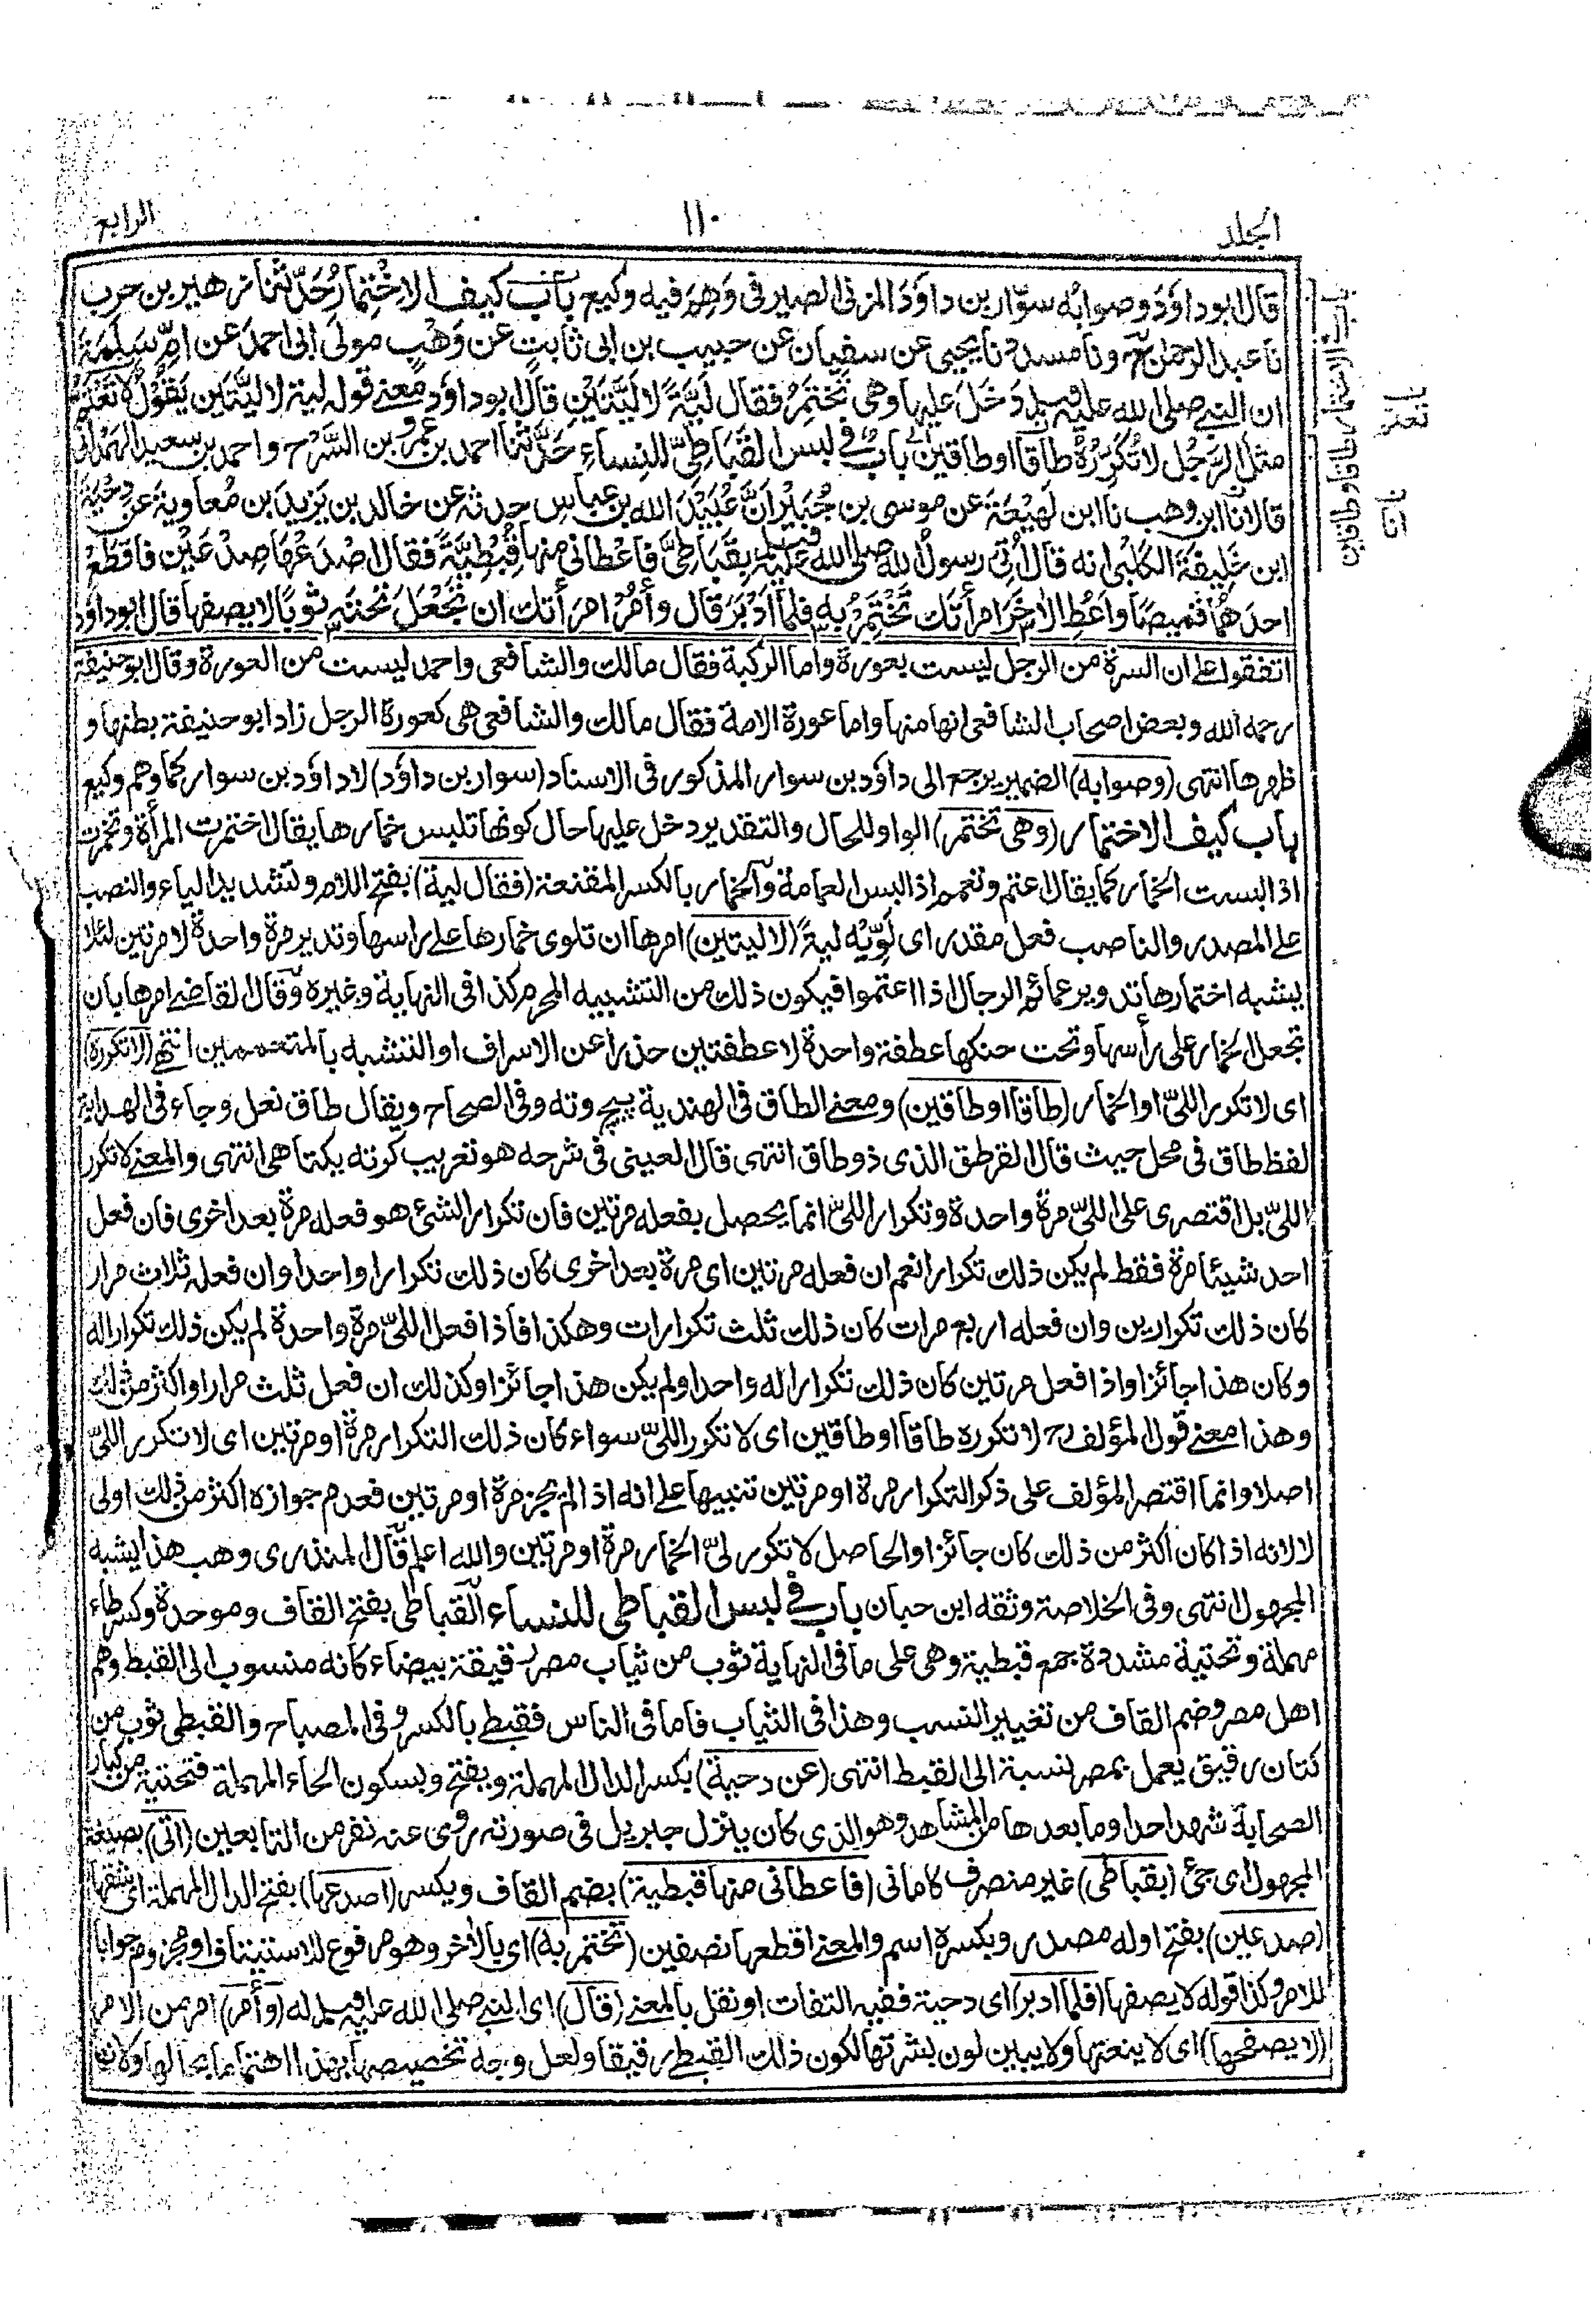 الجلد
١١٠
الرابع
قال ابوداؤد وصوابه سوّار بن داؤد المزنى الصيرفى وَهِمَ فيه وكيع باب كيف الاِخْتِمَارُ حَدَّثنا زهير بن حرب
نا عبد الرحمٰن ح ونا مسدد نا يحيى عن سفيان عن حبيب بن ابى ثابتٍ عن وَهْبٍ مولى ابى احمدَ عن امّ سَلِمَةَ
ان النبى صلى الله عليه وسلم دَخَلَ عليها وهى تَخْتَمِرُ فقال لَيَّةً لا لَيَّتَيْنِ قال ابوداؤد معنى قوله لية لا ليتين يَقُوْلُ لا تَعْتَمُّ
مثل الرَّجُل لا تُكَرِّرُهُ طاقًا او طاقين باب فى لبس القَبَاطِىِّ للنِساءِ حَدَّثنا احمد بن عمرو بن السَّرْح واحمد بن سعيد الهمدانى
قالا انا ابن وهب نا ابن لَهِيْعَةَ عن موسى بن جُبَيْر اَنَّ عُبَيْدَ الله بن عباس حدثه عن خالد بن يَزِيدَ بن مُعَاويةَ عن دِحْيَةَ
ابن خَلِيفَةَ الكَلْبى انه قال اُتِى رسولُ الله صلى الله عليه وسلم بِقَبَاطِىَّ فاَعْطانى منها قُبْطِيَّةً فقال اصْدَعْهَا صِدْعَيْن فاقطَعْ
احدَهُمَا قميصًا واَعْطِ الاٰخَرَ امرأَتَك تَخْتَمِرُ به فلمّا اَدْبَرَ قال وأمُرْ امرَأَتك ان تَجْعَلَ تحته ثوبًا لا يصفها قال ابوداؤد
اتفقوا على ان السرة من الرجل ليست بعورة واما الركبة فقال مالك والشافعى واحمد ليست من العورة وقال ابوحنيفة
رحمه الله وبعض اصحاب الشافعى انها منها واما عورة الامة فقال مالك والشافعى هى كعورة الرجل زاد ابو حنيفة بطنها و
ظهرها انتهى (وصوابه) الضمير يرجع الى داؤد بن سوار المذكور فى الاسناد (سوار بن داؤد) لا داؤد بن سوار كما وهم وكيع
باب كيف الاختمار (وهى تختمر) الواو للحال والتقدير دخل عليها حال كونها تلبس خمارها يقال اختمرت المرأة وتخمرت
اذا لبست الخمار كما يقال اعتم وتعمم اذا لبس العمامة والخمار بالكسر المقنعة (فقال لية) بفتح اللام وتشديد الياء والنصب
على المصدر والناصب فعل مقدر اى لَوِّيْه ليةً (لا ليتين) امرها ان تلوى خمارها على راسها وتديره مرة واحدة لا مرتين لئلا
يشبه اختمارها تدوير عمائم الرجال اذا اعتموا فيكون ذلك من التشبيه المحرم كذا فى النهاية وغيره وقال القاضى امرها بان
تجعل الخمار على رأسها وتحت حنكها عطفة واحدة لا عطفتين حذرا عن الاسراف او التشبه بالمتعممين انتهى (لا تكرره)
اى لا تكرر اللىّ او الخمار (طاقا او طاقين) ومعنى الطاق فى الهندية پيچ وته وفى الصحاح ويقال طاق نعل وجاء فى الهداية
لفظ طاق فى محل حيث قال القرطق الذى ذو طاق انتهى قال العينى فى شرحه هو تعريب كرته يكتاهى انتهى والمعنى لا تكرر
اللىّ بل اقتصرى على اللىّ مرة واحدة وتكرار اللىّ انما يحصل بفعله مرتين فان تكرار الشئ هو فعله مرة بعد اخرى فان فعل
احد شيئا مرة فقط لم يكن ذلك تكرارا نعم ان فعله مرتين اى مرة بعد اخرى كان ذلك تكرارا واحدا وان فعله ثلاث مرار
كان ذلك تكرارين وان فعله اربع مرات كان ذلك ثلث تكرارات وهكذا فاذا فعل اللىّ مرة واحدة لم يكن ذلك تكرارا له
وكان هذا جائزا واذا فعل مرتين كان ذلك تكرارا له واحدا ولم يكن هذا جائزا وكذلك ان فعل ثلث مرار او اكثر من ذلك
وهذا معنى قول المؤلف رح لا تكرره طاقا او طاقين اى لا تكرر اللىّ سواء كان ذلك التكرار مرة او مرتين اى لا تكرر اللىّ
اصلا وانما اقتصر المؤلف على ذكر التكرار مرة او مرتين تنبيها على انه اذا لم يجز مرة او مرتين فعدم جوازه اكثر من ذلك اولى
لا لانه اذا كان اكثر من ذلك كان جائزا والحاصل لا تكرر لىّ الخمار مرة او مرتين والله اعلم قال المنذرى وهب هذا يشبه
المجهول انتهى وفى الخلاصة وثقه ابن حبان باب فى لبس القباطى للنساء القباطى بفتح القاف وموحدة وكسر طاء
مهملة وتحتية مشددة جمع قبطية وهى على ما فى النهاية ثوب من ثياب مصر رقيقة بيضاء كانه منسوب الى القبط وهم
اهل مصر وضم القاف من تغيير النسب وهذا فى الثياب فاما فى الناس فقبطى بالكسر وفى المصباح والقبطى ثوب من
كتان رقيق يعمل بمصر نسبة الى القبط انتهى (عن دحية) بكسر الدال المهملة وبفتح وبسكون الحاء المهملة فتحتية من كبار
الصحابة شهد احدا وما بعدها من المشاهد وهو الذى كان ينزل جبريل فى صورته روى عنه نفر من التابعين (اتى) بصيغة
المجهول اى جئ (بقباطى) غير منصرف كامانى (فاعطانى منها قبطية) بضم القاف ويكسر (اصدعها) بفتح الدال المهملة اى شقها
(صدعين) بفتح اوله مصدر وبكسره اسم والمعنى اقطعها نصفين (تختمر به) اى بالاٰخر وهو مرفوع للاستيناف او مجزوم جوابا
للامر وكذا قوله لا يصفها (فلما ادبر) اى دحية ففيه التفات او نقل بالمعنى (قال) اى النبى صلى الله عليه وسلم له (وأمر) امر من الامر
(لا يصفها) اى لا ينعتها ولا يبين لون بشرتها لكون ذلك القبطى رقيقا ولعل وجه تخصيصها بهذا اهتماما بحالها ولانها
باب الاختمار
طاقا وطاقين
يا
تعتم
انا نا